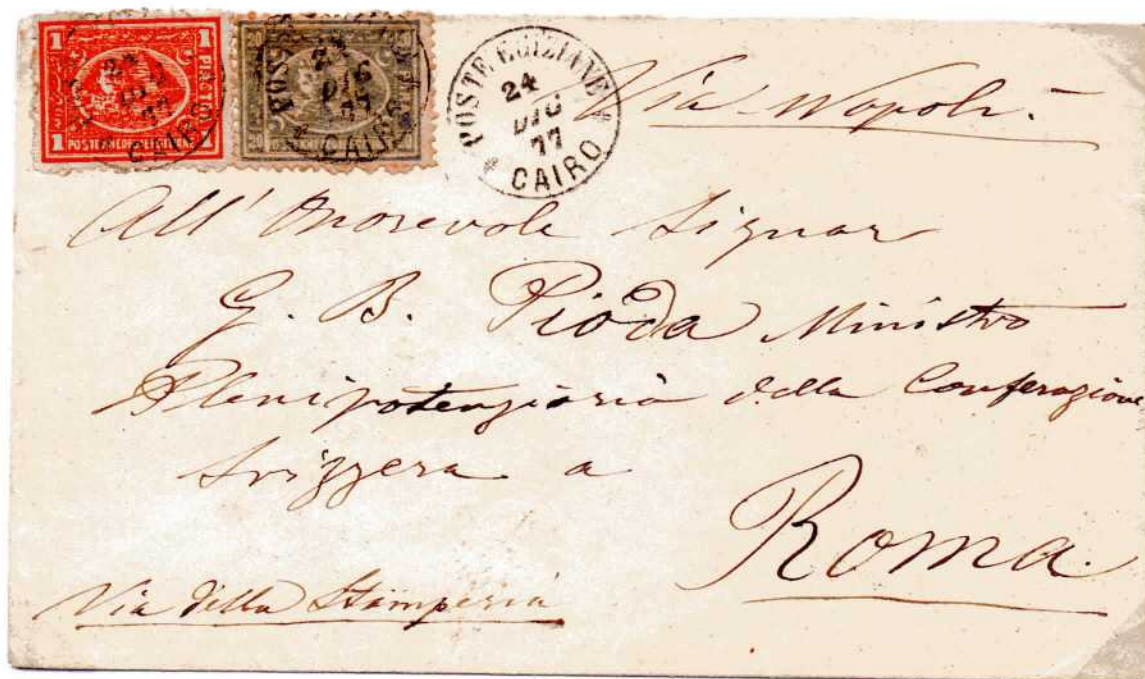 1 1 PIASTRE
POSTE KHEDEUIE EGIZIANE
20 20
POSTE EGIZIANE
24
DIC
77
CAIRO
Via Napoli
All' Onorevole Signor
G. B. Pioda Ministro
Plenipotenziario della Conferazione
Svizzera a
Roma
Via della Stamperia